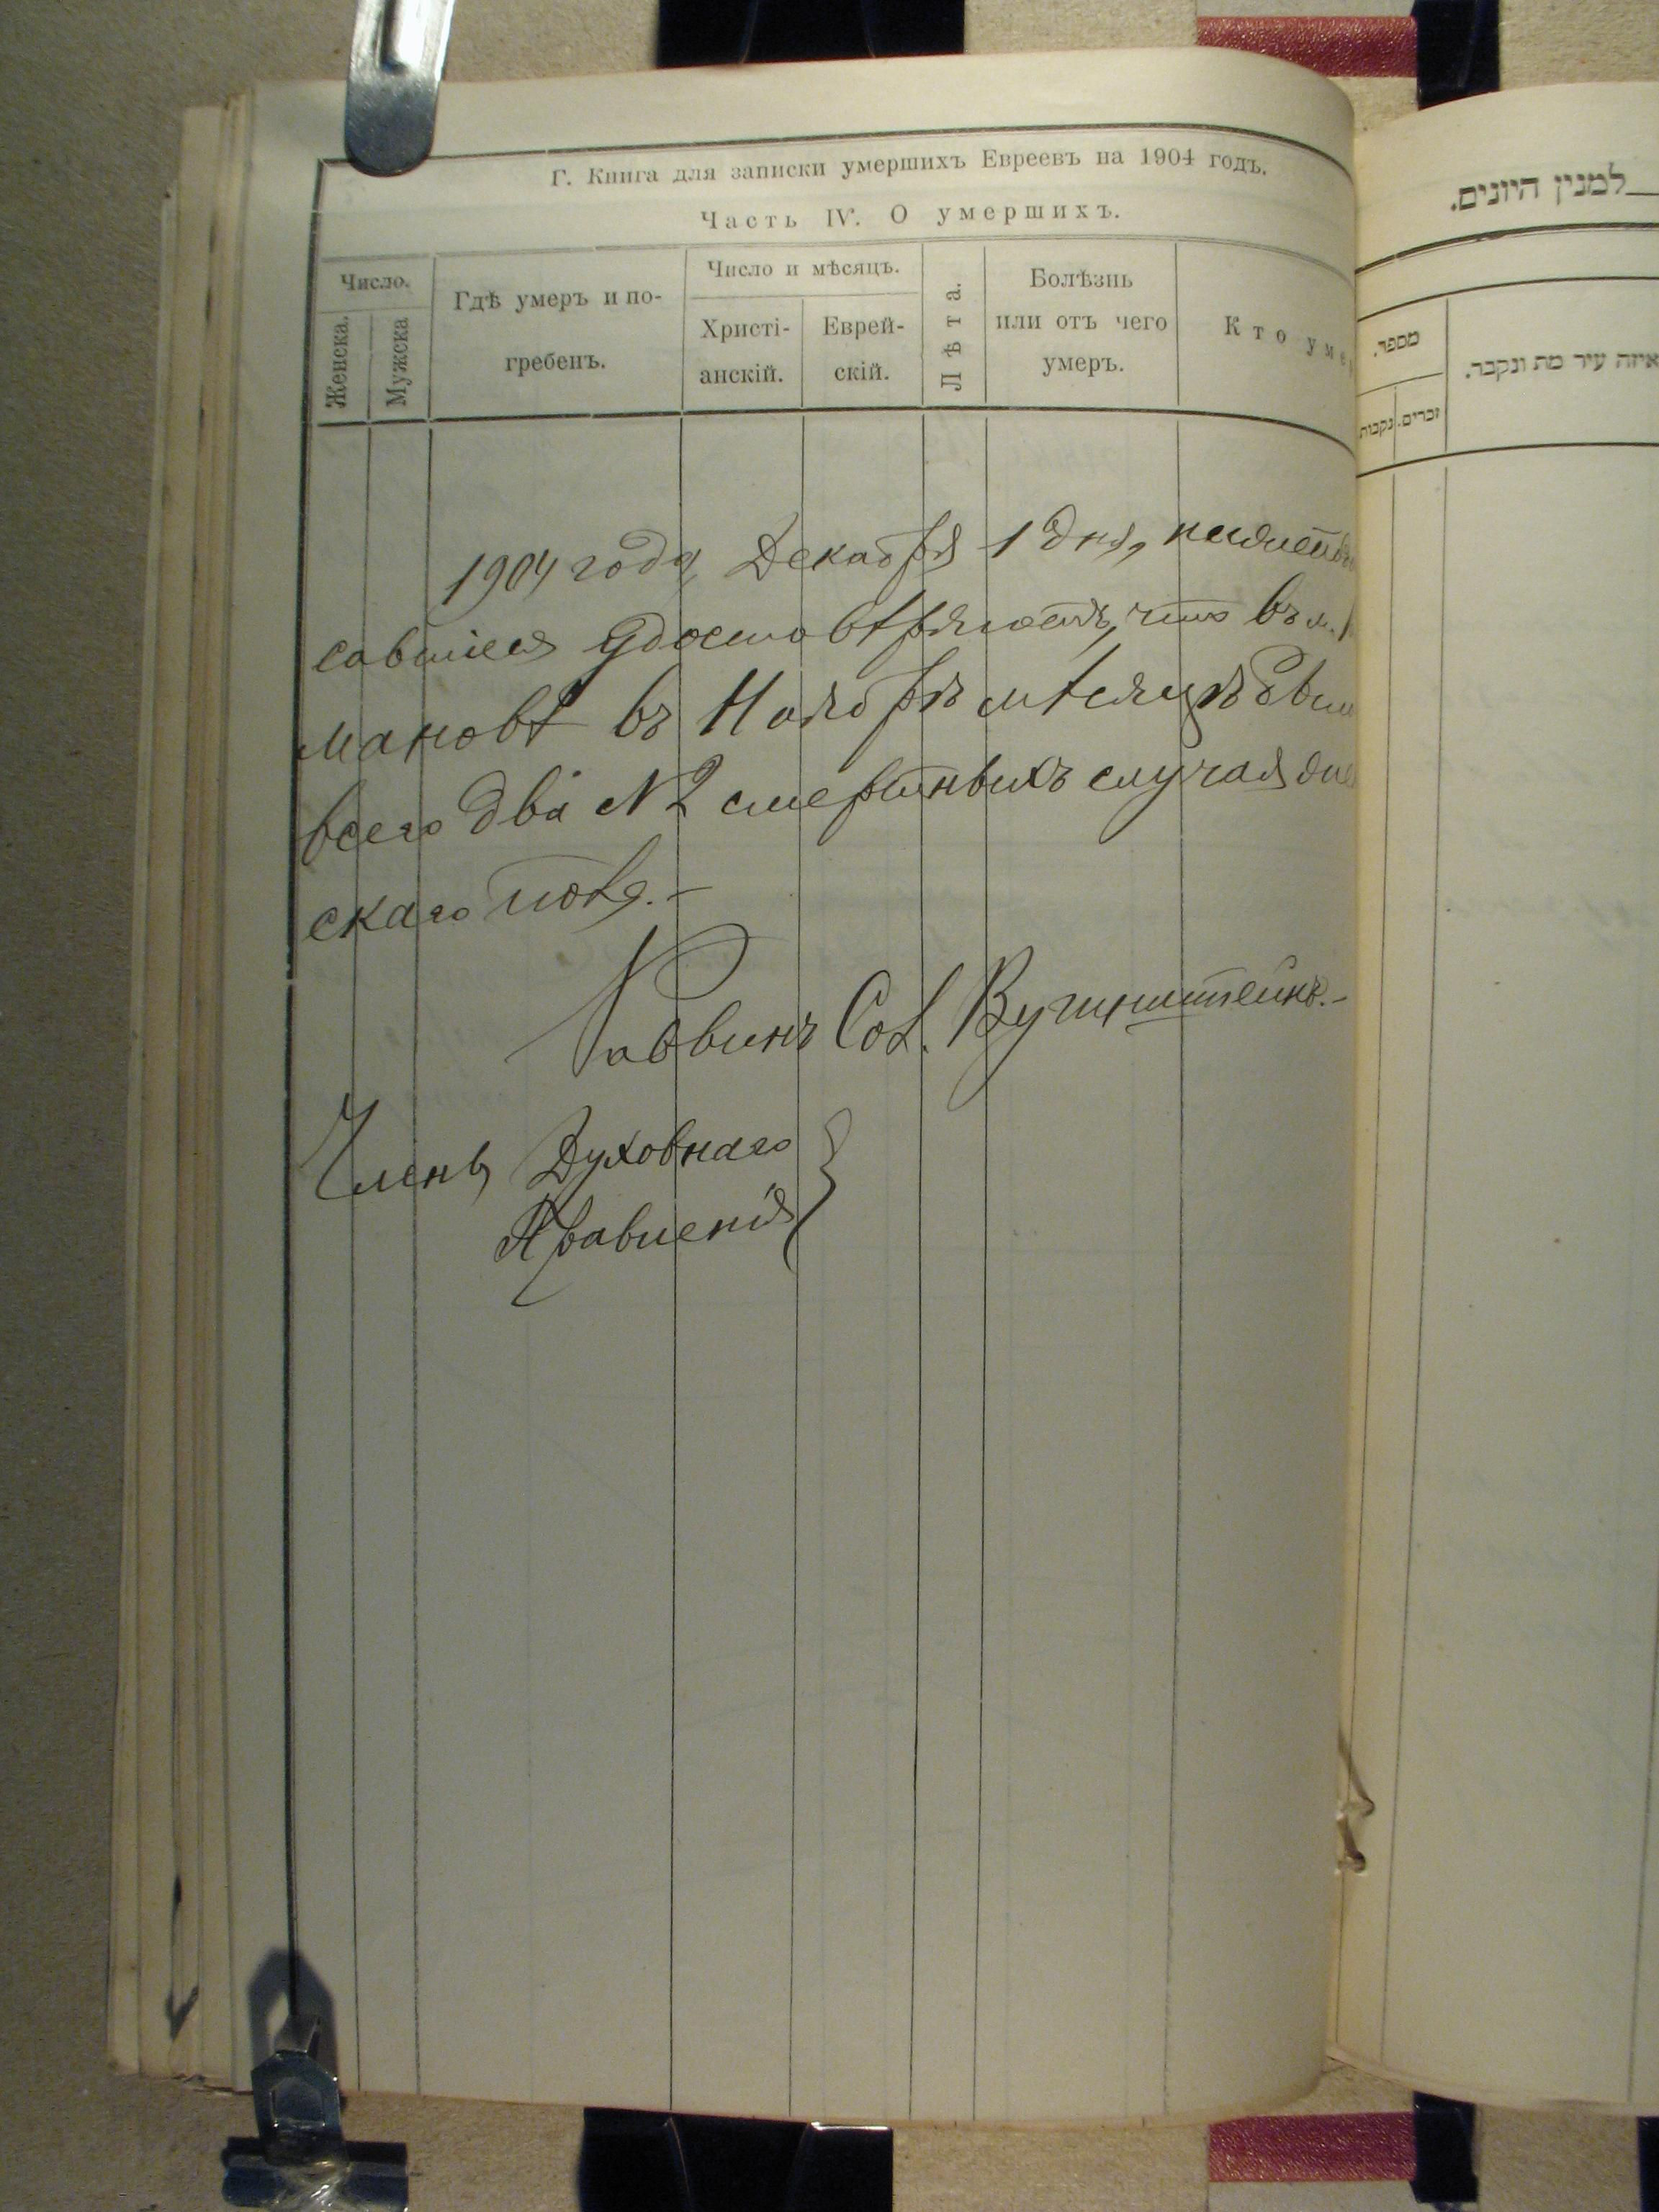 Г. Книга для записки умершихъ Евреевъ на 1904 годъ.
Часть IV. О умершихъ.
Число.
Женска.
Мужска
Гдѣ умеръ и по-
гребенъ.
Число и мѣсяцъ.
Христі-
анскій.
Еврей-
скій.
Лѣта.
Болѣзнь
или отъ чего
умеръ.
Кто уме
1904 года, Декабря 1 дня,
савшіеся удостовѣряютъ, что въ м.
мановѣ въ Ноябрѣ мѣсяцѣ
всего два № 2 смертныхъ случая
скаго пола.-
Раввинъ
Члены Духовнаго
Правленія
למנין היונים.
מספר.
זכרים.
נקבות
איזה עיר מת ונקבר.